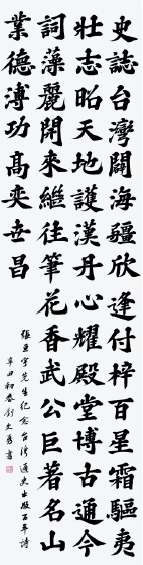 史誌台灣闢海疆欣逢付梓百星霜驅夷
壯志昭天地護漢丹心耀殿堂博古通今
詞藻麗開來繼往筆花香武公巨著名山
業德溥功高奕世昌
張亞宇先生紀念台灣通史出版百年詩
辛丑初春劉文彥書